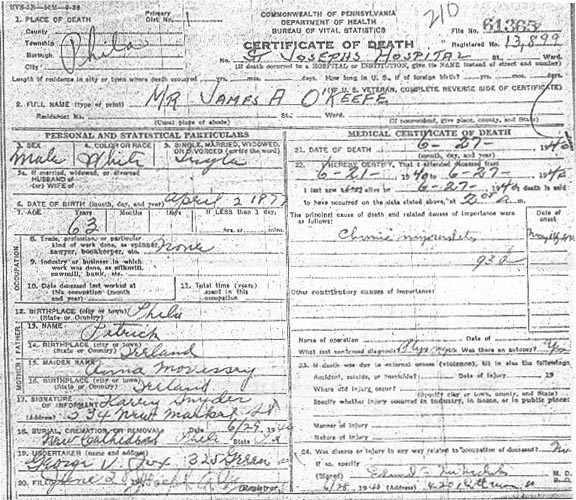 COMMONWEALTH OF PENNSYLVANIA
DEPARTMENT OF HEALTH
BUREAU OF VITAL STATISTICS
CERTIFICATE OF DEATH
210
File No. 61365
Registered No. 13,899
1. PLACE OF DEATH
Primary
Dist. No.
County
Township
Borough
City
Phila
No. St Josephs Hospital St., Ward.
(If death occurred in a HOSPITAL or INSTITUTION, give its NAME instead of street and number)
Length of residence in city or town where death occurred yrs. mos. days. How long in U. S., if of foreign birth? yrs. mos. days.
(IF U. S. VETERAN, COMPLETE REVERSE SIDE OF CERTIFICATE)
2. FULL NAME (type or print) MR JAMES A O'KEEFE
Residence: No. St. Ward.
(Usual place of abode) (If nonresident, give place, county, and State)
PERSONAL AND STATISTICAL PARTICULARS
3. SEX
Male
4. COLOR OR RACE
White
5. SINGLE, MARRIED, WIDOWED, OR DIVORCED (write the word)
Single
5a. If married, widowed, or divorced
HUSBAND of
(or) WIFE of
6. DATE OF BIRTH (month, day, and year) April 2 1877
7. AGE Years Months Days If LESS than 1 day,
63 hrs. or mins.
OCCUPATION
8. Trade, profession, or particular
kind of work done, as spinner,
sawyer, bookkeeper, etc. None
9. Industry or business in which
work was done, as silkmill,
sawmill, bank, etc.
10. Date deceased last worked at
this occupation (month
and year)
11. Total time (years)
spent in this
occupation
12. BIRTHPLACE (city or town) Phila
(State or Country)
FATHER
13. NAME Patrick
14. BIRTHPLACE (city or town)
(State or Country) Ireland
MOTHER
15. MAIDEN NAME Anna
16. BIRTHPLACE (city or town)
(State or Country) Ireland
17. SIGNATURE
OF INFORMANT Harry Snyder
(Address) 234 New Market St
18. BURIAL, CREMATION OR REMOVAL Date 6/29 1940
New Cathedral Phila State Pa
19. UNDERTAKER (name and address)
George V. Fox 325 Green
20. FILED
Registrar.
MEDICAL CERTIFICATE OF DEATH
21. DATE OF DEATH 6-27- 1940
(month, day, year)
22. I HEREBY CERTIFY, That I attended deceased from
6-21- 1940 to 6-27- 1940
I last saw alive on 6-27- 1940 death is said
to have occurred on the date stated above, at m.
The principal cause of death and related causes of importance were
as follows:
Date of
onset
Chronic myocarditis
Other contributory causes of importance:
Name of operation Date of
What test confirmed diagnosis? Was there an autopsy?
23. If death was due to external causes (violence), fill in also the following:
Accident, suicide, or homicide? Date of injury 19
Where did injury occur?
(Specify city or town, county, and State)
Specify whether injury occurred in industry, in home, or in public place:
Manner of injury
Nature of injury
24. Was disease or injury in any way related to occupation of deceased? No
If so, specify
(Signed) M. D.
6/28 1940 (Address)